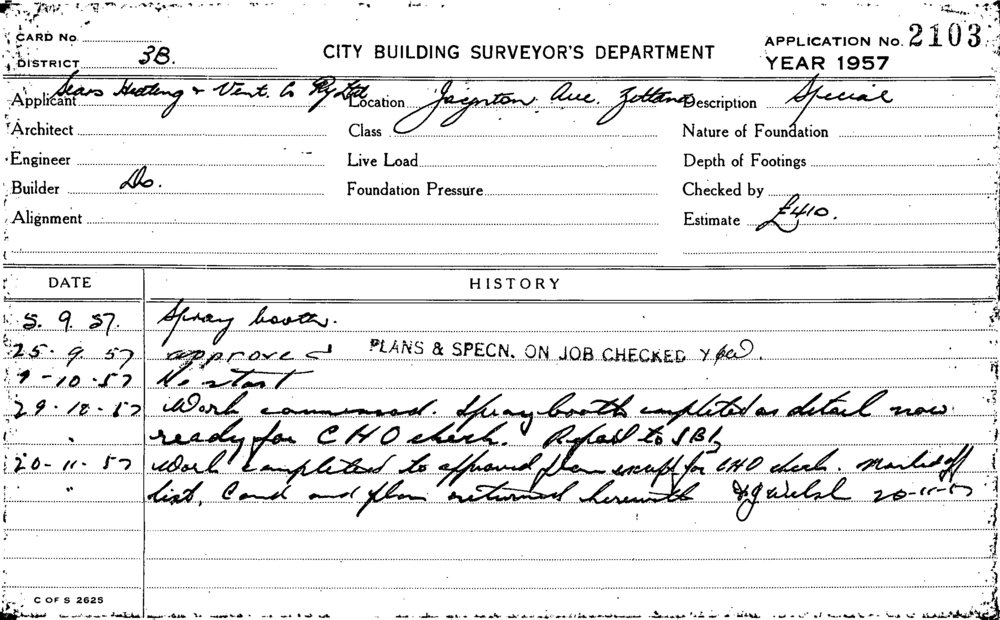 CARD No.
DISTRICT 3B.
CITY BUILDING SURVEYOR'S DEPARTMENT
APPLICATION No. 2103
YEAR 1957
Applicant Sears Heating & Vent. Co Pty Ltd Location Joynton Ave. Zetland Description Special
Architect Class Nature of Foundation
Engineer Live Load Depth of Footings
Builder Do. Foundation Pressure Checked by
Alignment Estimate £410.
DATE HISTORY
5. 9. 57. Spray booth.
25. 9. 57 approved PLANS & SPECN. ON JOB CHECKED
9-10-57 No start
29-10-57 Work commenced. Spray booth completed as detail now
" ready for C H O check. to SBI
20-11-57 Work completed to approved plan except for CHO check. Marked off
" list, Card and plan returned herewith Welsh 20-11-57
C OF S 2625